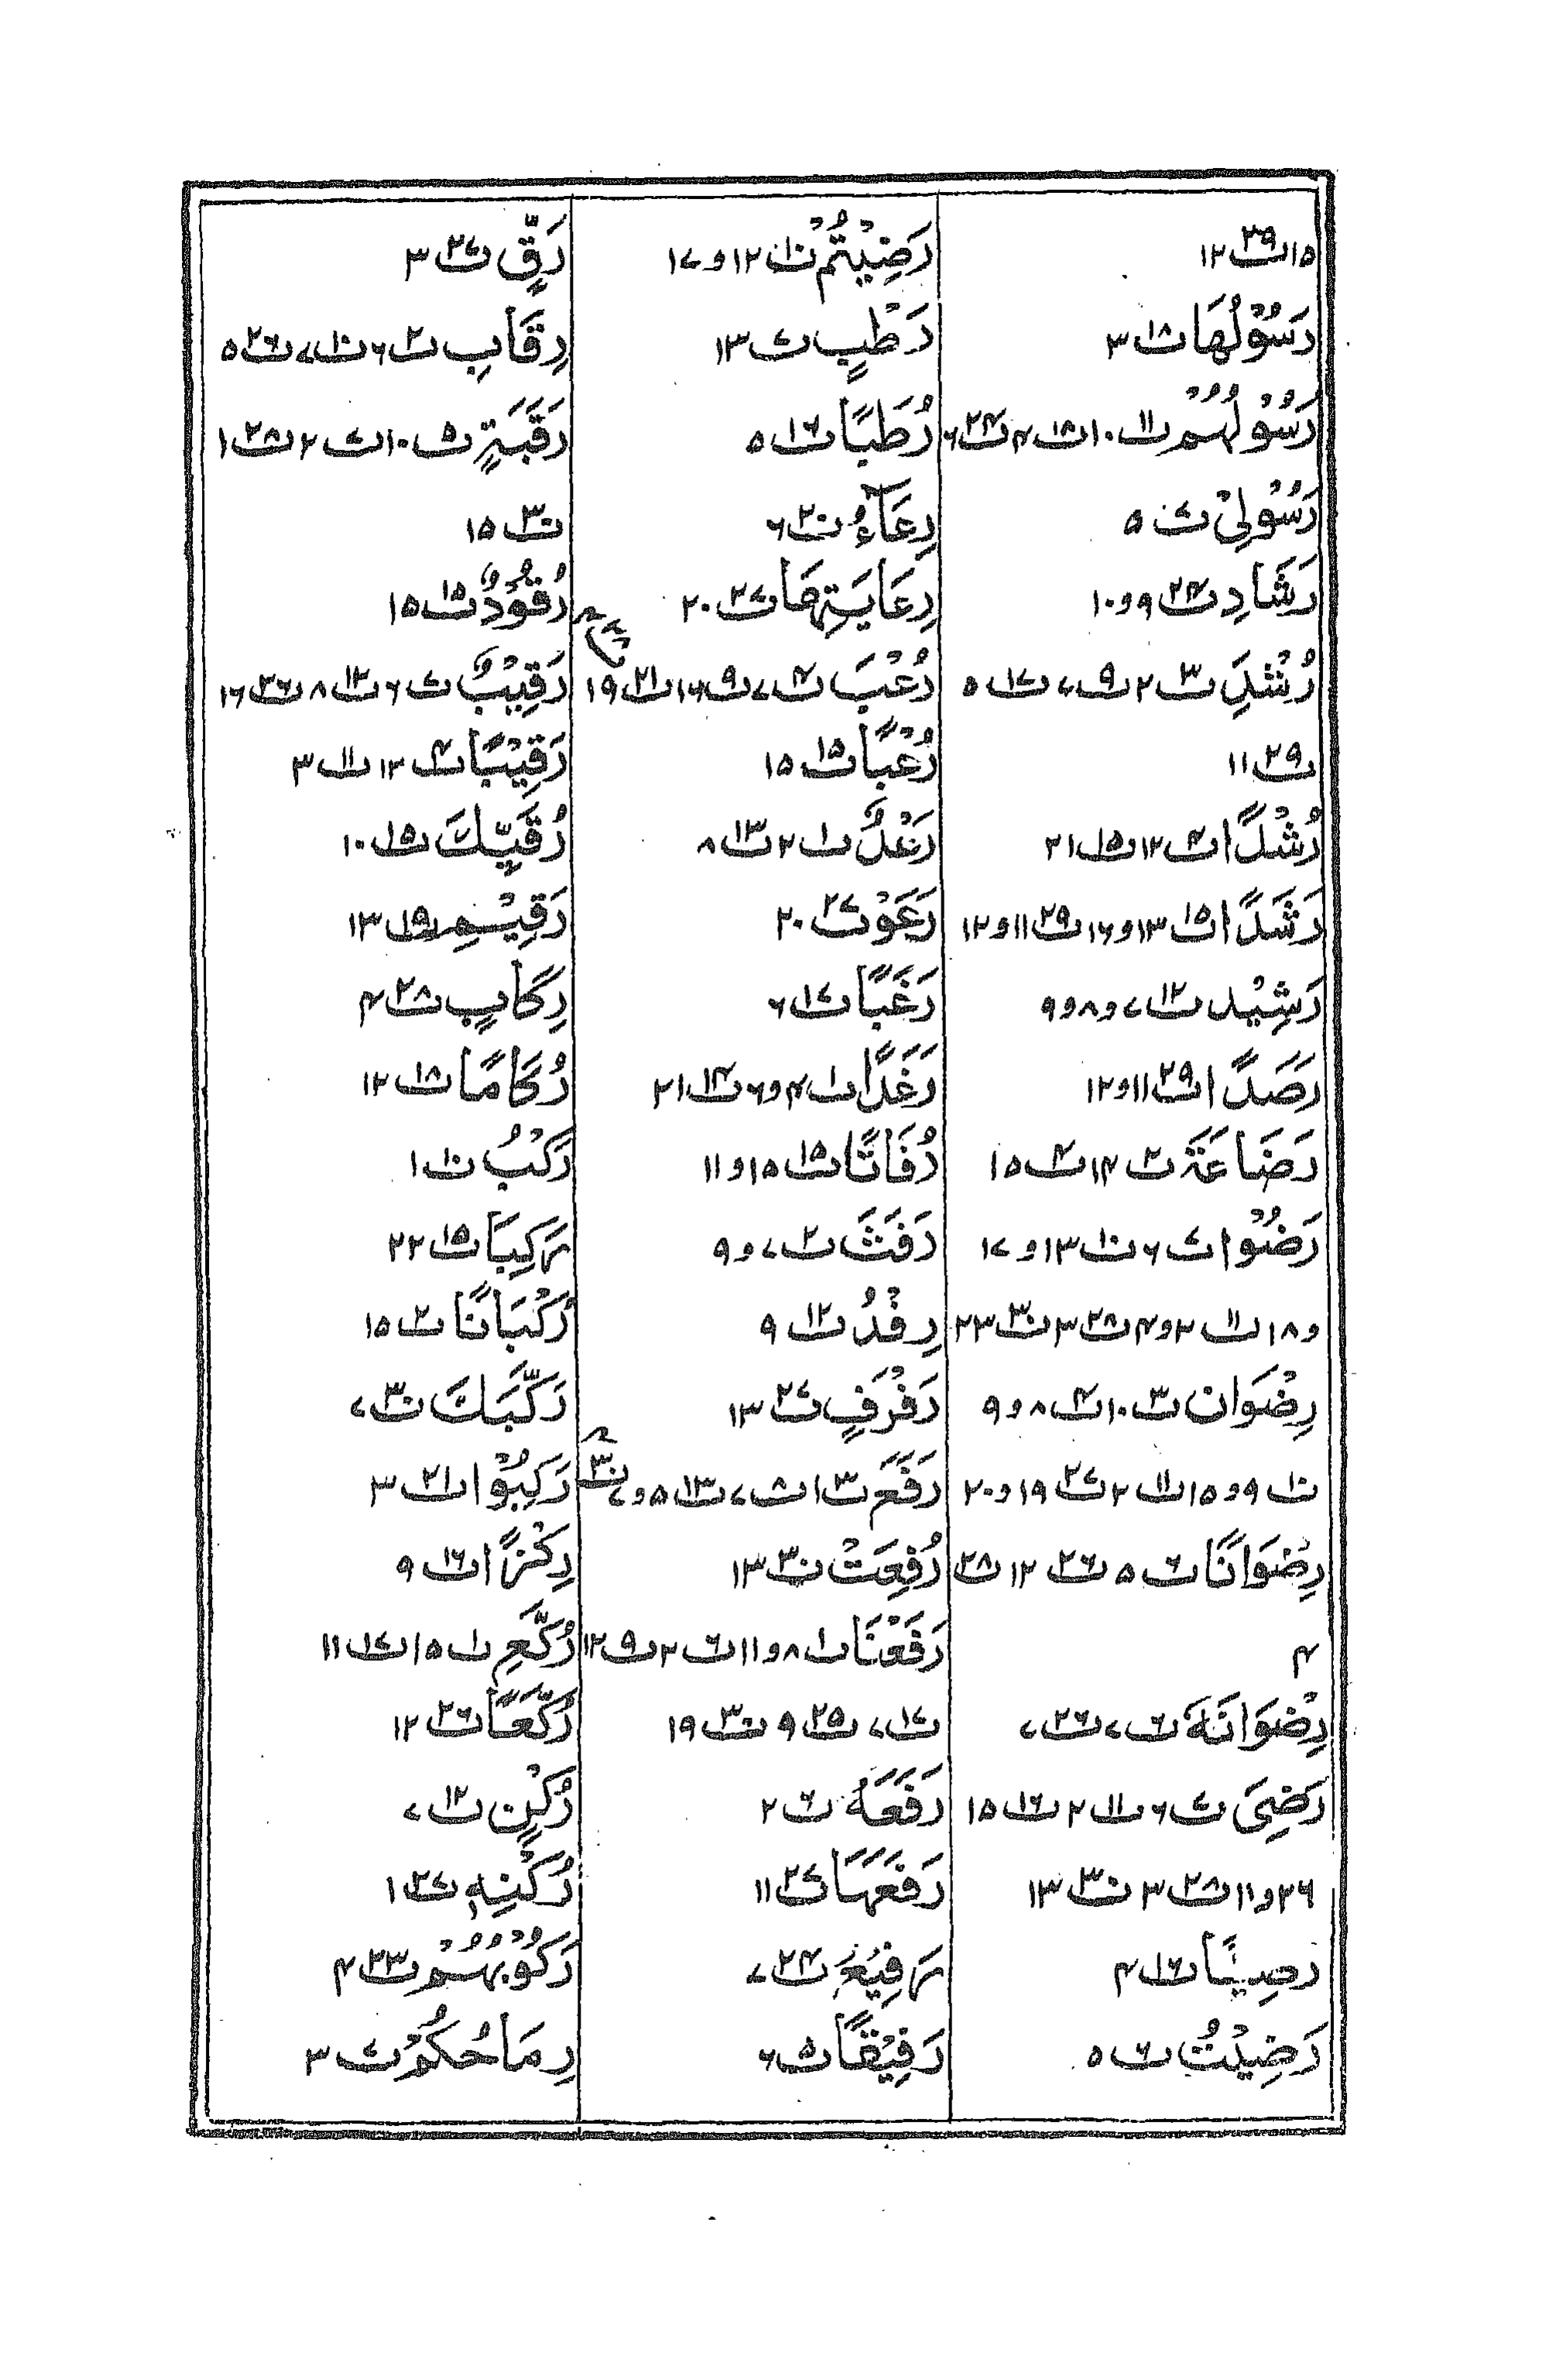 ۱۵ ت۲۹ ۱۲
رَسُوْلُهَا ت۱۸ ۳
رَسُوْلُهُمْ ت۱۱ ۱۰ ت۱۸ ۴ ت۲۴ ۶
رَسُوْلِیْ ت۷ ۵
رَشَادِ ت۲۴ ۹ و ۱۰
رُشْدِ ت۳ ۲ ت۹ ۷ ت۱۷ ۵
ت۲۹ ۱۱
رُشْدًا ت۴ ۱۲ ت۱۵ ۲۱
رَشَدًا ت۱۵ ۱۳ و ۱۶ ت۲۹ ۱۱ و ۱۲
رَشِیْد ت۱۲ ۷ و ۸ و ۹
رَصَدًا ت۲۹ ۱۱ و ۱۲
رَضَاعَةَ ت۲ ۱۴ ت۴ ۱۵
رَضُوْا ت۷ ۶ ت۱۰ ۱۳ و ۱۷
و ۱۸ ت۱۱ ۲ و ۴ ت۲۸ ۳ ت۳۰ ۲۳
رِضْوَان ت۳ ۱۰ ت۴ ۸ و ۹
ت۱۰ ۹ و ۱۵ ت۱۱ ۲ ت۲۷ ۱۹ و ۲۰
رِضْوَانًا ت۶ ۵ ت۲۶ ۱۲ ت۲۸
۴
رِضْوَانَهٗ ت۶ ۷ ت۲۶ ۷
رَضِیَ ت۷ ۶ ت۱۱ ۲ ت۱۶ ۱۵
۲۶ و ۱۱ ت۲۸ ۳ ت۳۰ ۱۳
رضِیًّا ت۱۶ ۴
رَضِیْتُ ت۶ ۵
رَضِیْتُمْ ت۱۰ ۱۲ و ۱۷
رَطْبٍ ت۷ ۱۳
رُطَبًا ت۱۶ ۵
رِعَآءُ ت۲۰ ۶
رِعَایَتِهَا ت۲۷ ۲۰
رُعْبَ ت۴ ۷ ت۹ ۱۶ ت۲۱ ۱۹
رُعْبًا ت۱۵ ۱۵
رَعْدٌ ت۱ ۲ ت۱۳ ۸
رَعَوْ ت۲۷ ۲۰
رَغَبًا ت۱۷ ۶
رَغَدًا ت۱ ۴ و ۶ ت۱۴ ۲۱
رُفَاتًا ت۱۵ ۱۵ و ۱۱
رَفَثَ ت۲ ۷ و ۹
رِفْدُ ت۱۲ ۹
رَفْرَفٍ ت۲۷ ۱۳
رَفَعَ ت۳ ۱ ت۸ ۷ ت۱۳ ۵ و ۷ ت۳۰
رُفِعَتْ ت۳۰ ۱۳
رَفَعْنَا ت۱ ۸ و ۱۱ ت۶ ۲ ت۹ ۱۲
ت۱۶ ۷ ت۲۵ ۹ ت۳۰ ۱۹
رَفَعَهُ ت۶ ۲
رَفَعَهَا ت۲۷ ۱۱
رَفِیْعُ ت۲۴ ۷
رَفِیْقًا ت۵ ۶
رَقٍّ ت۲۷ ۳
رِقَابِ ت۲ ۶ ت۱۰ ۷ ت۲۶ ۵
رَقَبَةٍ ت۵ ۱۰ ت۷ ۲ ت۲۸ ۱
ت۳۰ ۱۵
رُقُوْدٌ ت۱۵ ۱۵
رَقِیْبٌ ت۷ ۶ ت۱۲ ۸ ت۲۶ ۱۶
رَقِیْبًا ت۴ ۱۲ ت۱۱ ۳
رُقِیِّكَ ت۱۵ ۱۰
رَقِیْمِ ت۱۵ ۱۳
رِكَابٍ ت۲۸ ۴
رُكَامًا ت۱۸ ۱۲
رَكْبُ ت۱۰ ۱
رَكِبَا ت۱۵ ۲۲
رُكْبَانًا ت۲ ۱۵
رَكَّبَكَ ت۳۰ ۷
رَكِبُوْا ت۲۱ ۳
رِكْزًا ت۱۶ ۹
رُكَّعِ ت۱ ۱۵ ت۱۷ ۱۱
رُكَّعًا ت۲۶ ۱۲
رُكْنٍ ت۱۲ ۷
رُكْنِهٖ ت۲۷ ۱
رَكُوْبُهُمْ ت۲۳ ۴
رِمَاحُكُمْ ت۷ ۳